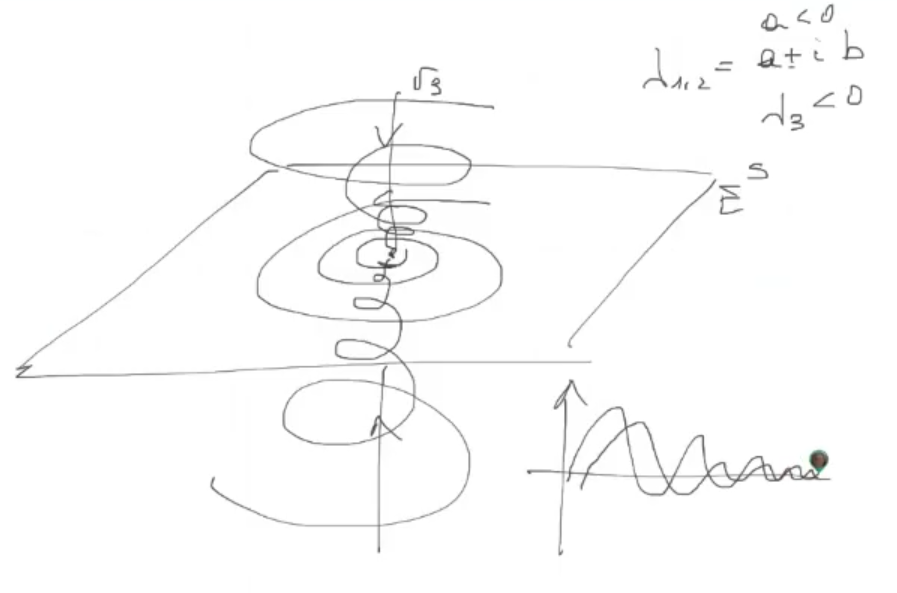 a < 0
λ₁,₂ = a ± i b
λ₃ < 0
v₃
E^S